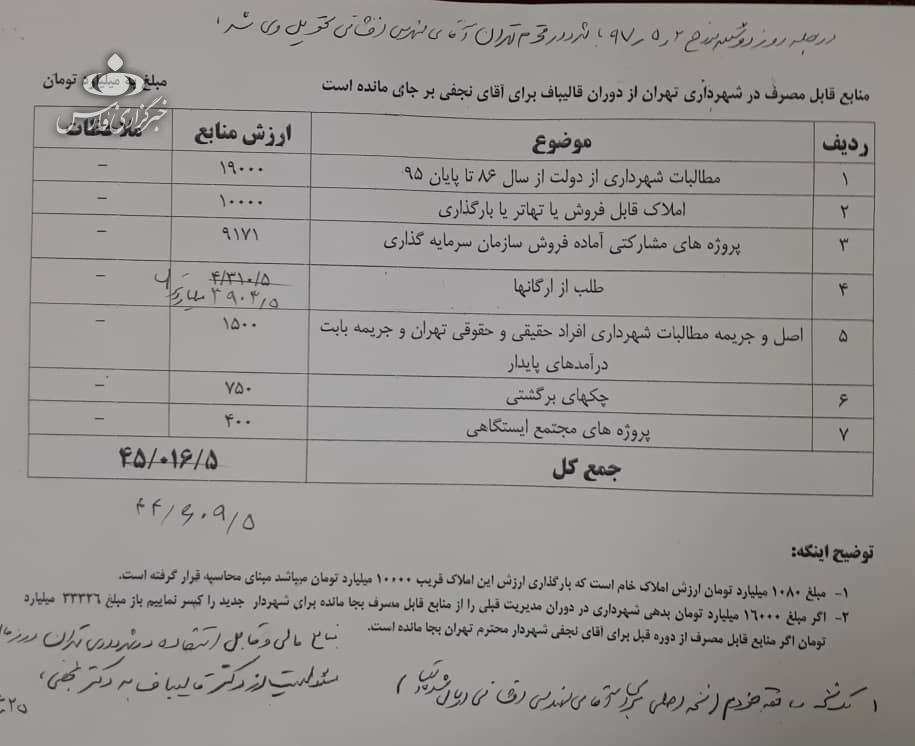 در جلسه روز دوشنبه مورخ ۹۷/۵/۲ با شهردار محترم تهران آقای مهندس افشانی تحویل وی شد.
منابع قابل مصرف در شهرداری تهران از دوران قالیباف برای آقای نجفی بر جای مانده است
مبلغ به میلیارد تومان
خبرگزاری فارس
ردیف موضوع ارزش منابع ملاحظات
۱ مطالبات شهرداری از دولت از سال ۸۶ تا پایان ۹۵ ۱۹۰۰۰ –
۲ املاک قابل فروش یا تهاتر یا بارگذاری ۱۰۰۰۰ –
۳ پروژه های مشارکتی آماده فروش سازمان سرمایه گذاری ۹۱۷۱ –
۴ طلب از ارگانها ۴/۳۱۰/۵ –
۳۹۰۳/۵
۵ اصل و جریمه مطالبات شهرداری افراد حقیقی و حقوقی تهران و جریمه بابت ۱۵۰۰ –
درآمدهای پایدار
۶ چکهای برگشتی ۷۵۰ –
۷ پروژه های مجتمع ایستگاهی ۴۰۰ –
جمع کل ۴۵/۰۱۶/۵
۴۴/۶۰۹/۵
توضیح اینکه:
۱- مبلغ ۱۰۸۰ میلیارد تومان ارزش املاک خام است که بارگذاری ارزش این املاک قریب ۱۰۰۰۰ میلیارد تومان میباشد مبنای محاسبه قرار گرفته است.
۲- اگر مبلغ ۱۶۰۰۰ میلیارد تومان بدهی شهرداری در دوران مدیریت قبلی را از منابع قابل مصرف بجا مانده برای شهردار جدید را کسر نماییم باز مبلغ ۳۳۳۲۶ میلیارد
تومان اگر منابع قابل مصرف از دوره قبل برای آقای نجفی شهردار محترم تهران بجا مانده است.
منابع مالی و قابل استفاده در شهرداری تهران در زمان
مسئولیت از دکتر قالیباف به دکتر نجفی
۱ یک نسخه سابقه خودم (نسخه اصلی برای آقای مهندس افشانی ارسال شد)